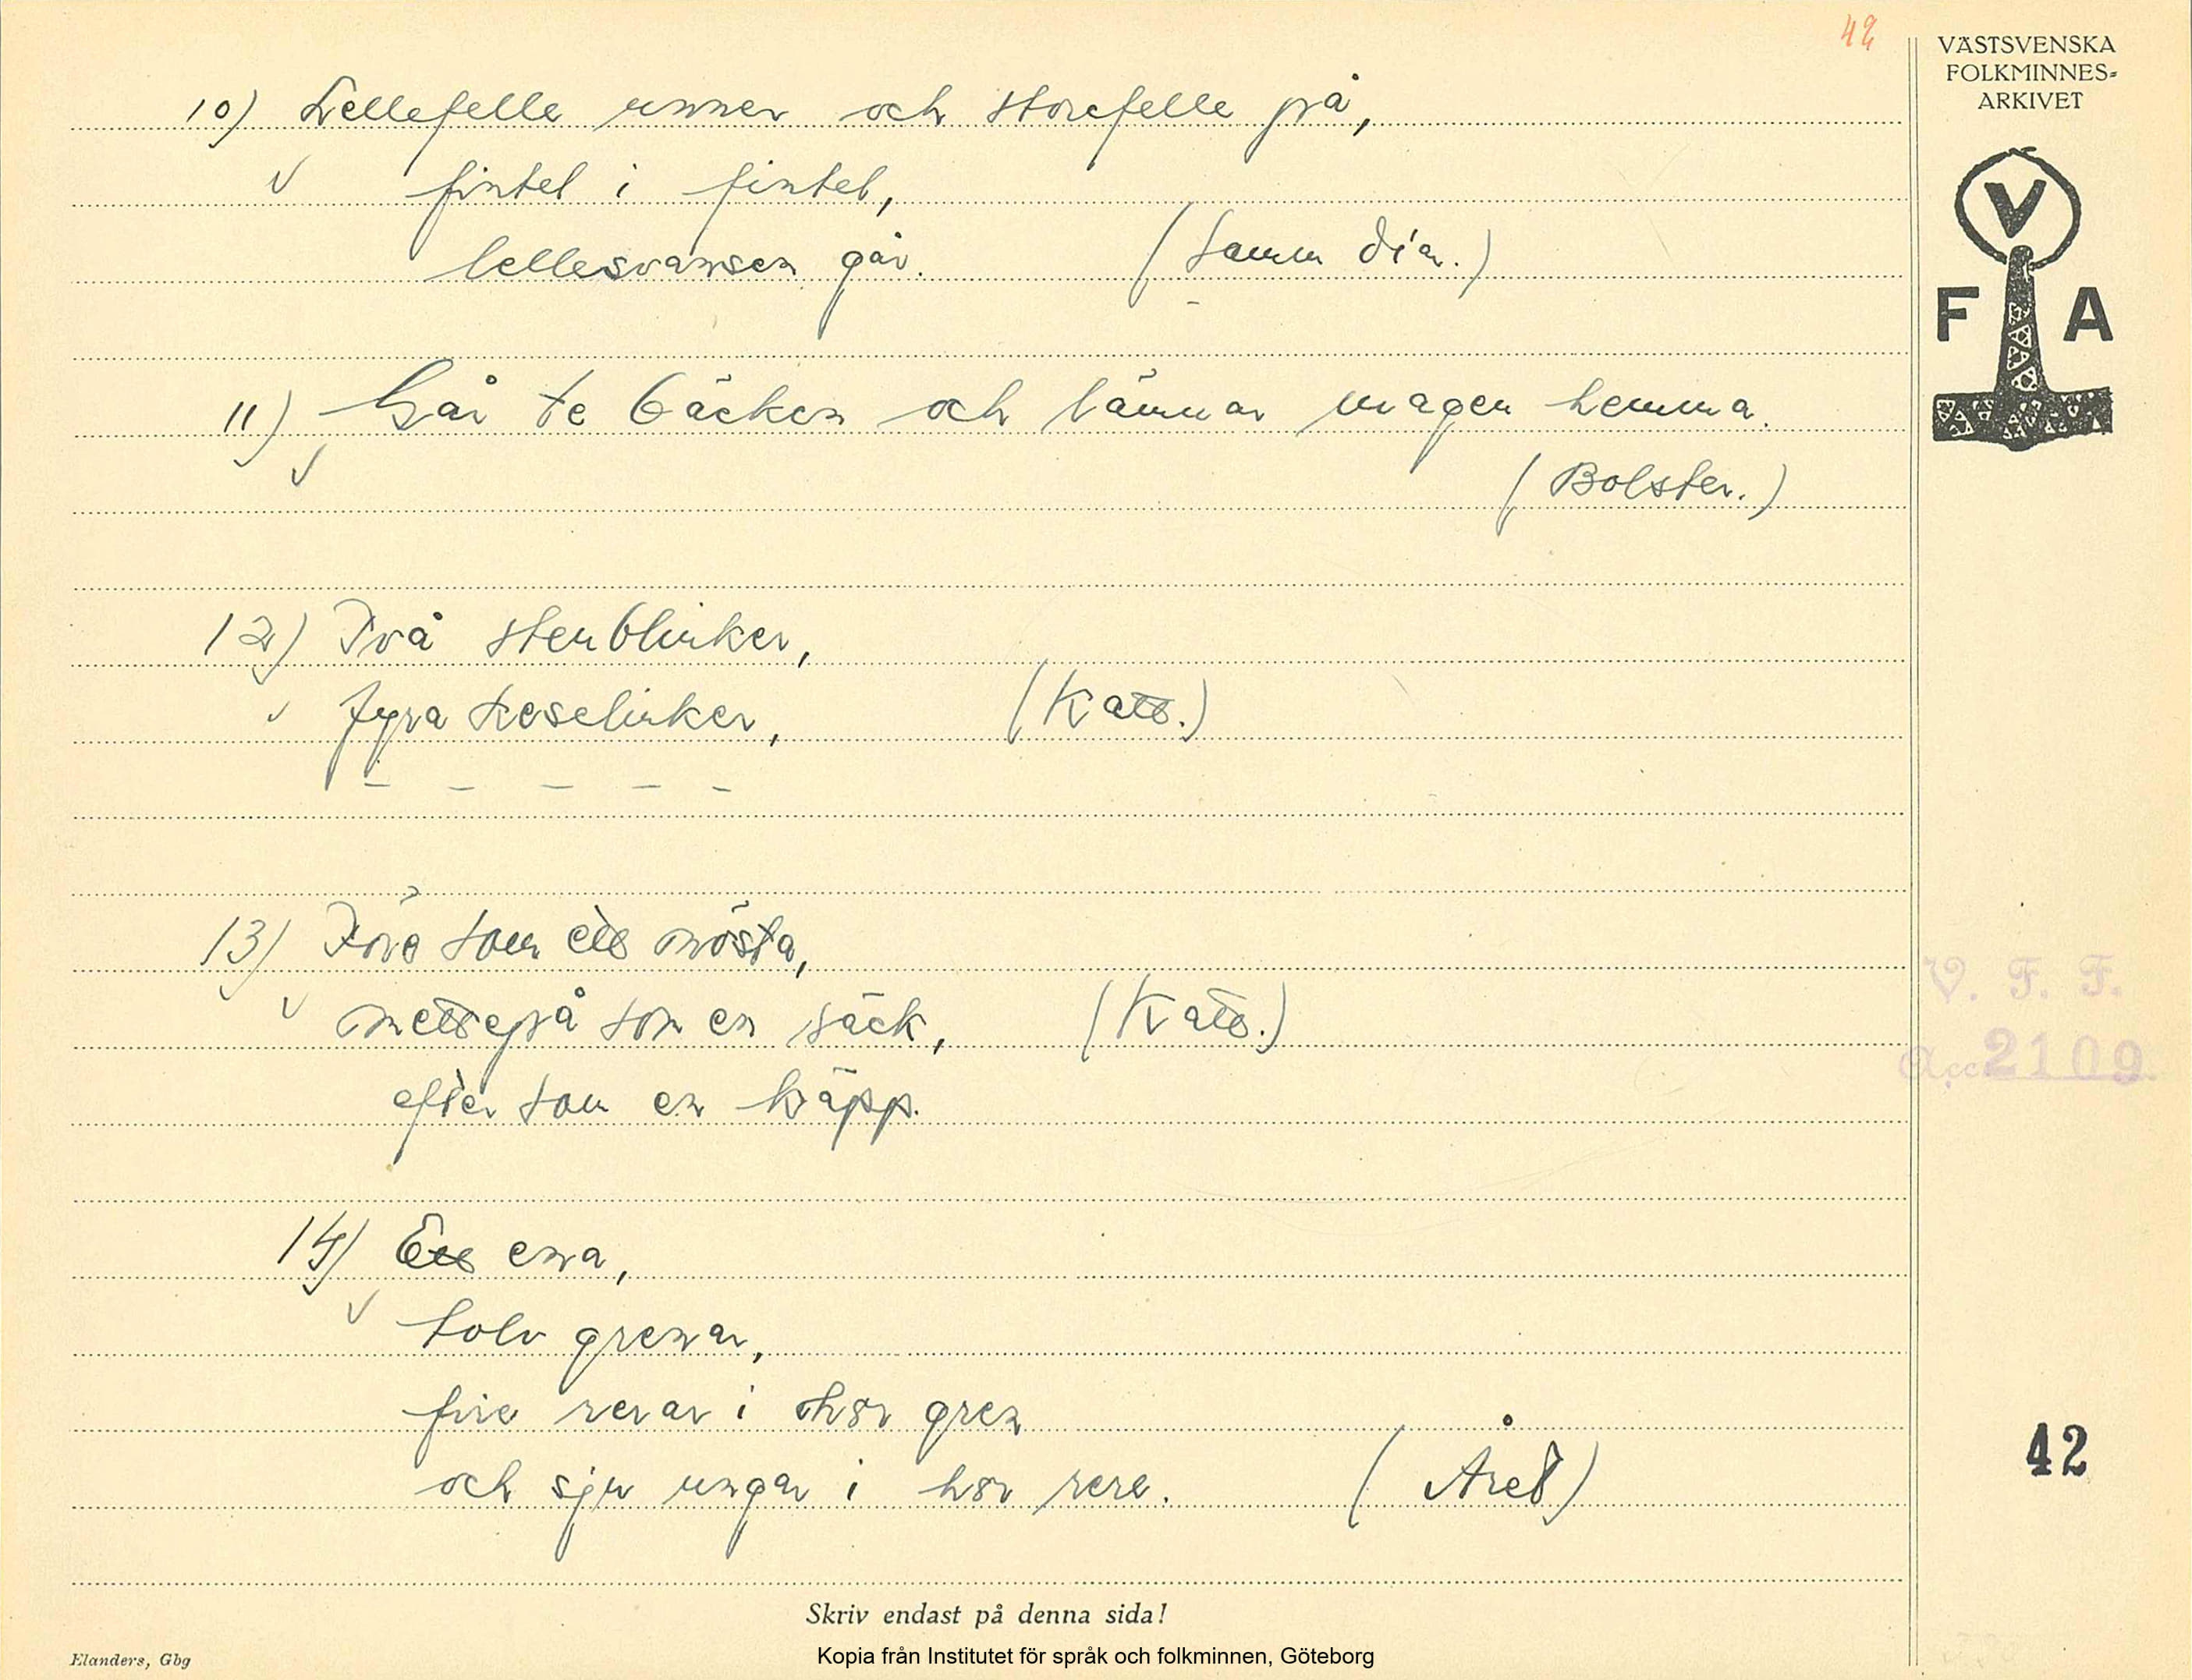 42
VÄSTSVENSKA
FOLKMINNES=
ARKIVET
V
F A
10) Lellefelle unner och storefelle på,
fintel i fintel,
lellesvansen går. (Samm dia.)
11) Går te bäcken och lämnar magen hemma.
(Bolster.)
12) Två stenblinker,
fyra leselinker, (Katt.)
– – – – –
13) Före som ett nösta,
mettepå som en säck, (Katt.)
efter som en käpp.
14) Ett ena,
tolv grenar,
fire rerar i hvar gren
och sju ungar i hvar rere. (Året)
V. F. F.
Acc 2109
42
Skriv endast på denna sida!
Elanders, Gbg
Kopia från Institutet för språk och folkminnen, Göteborg